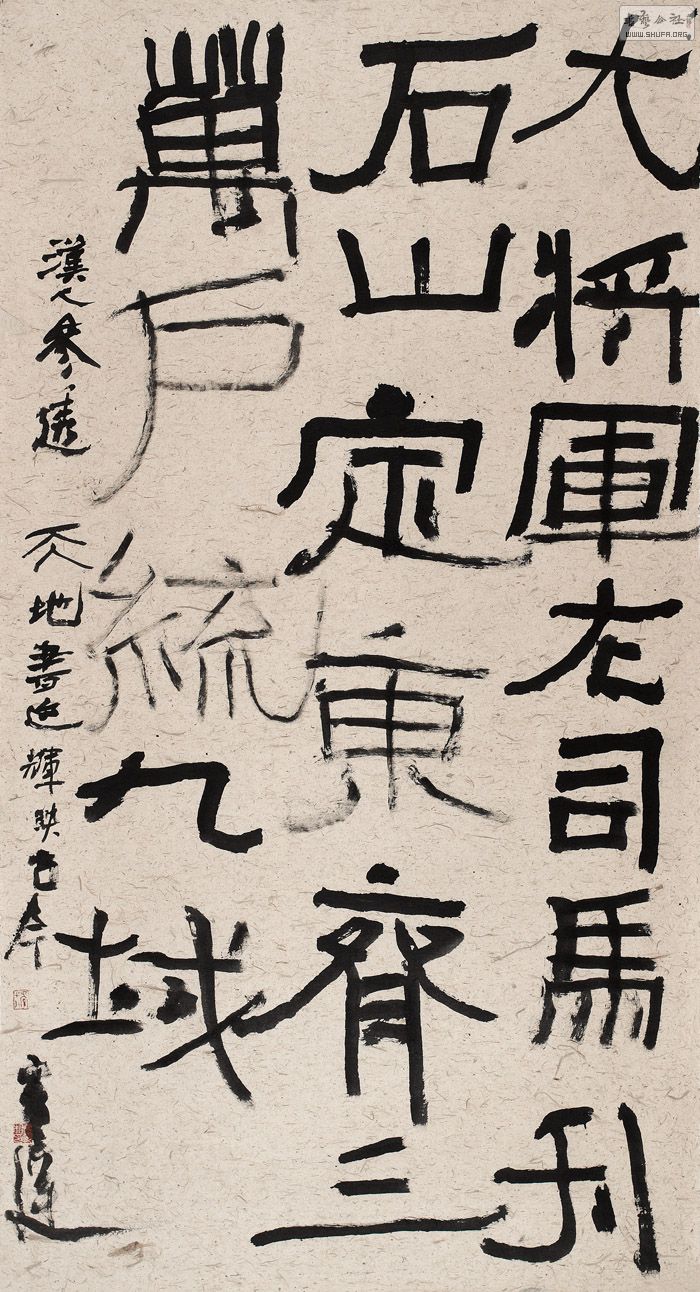 大將軍左司馬刊
石山定東齊三
萬户統九域
漢人參透天地書輝映古今
書藝公社
WWW.SHUFA.ORG